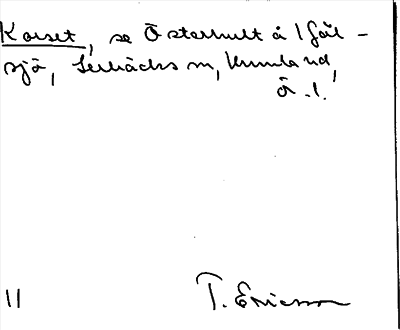 Korset, se Österhult å 1 Gäl-
sjö, Lerbäcks sn, Kumla hd,
ö. l.
11 T. Ericsson